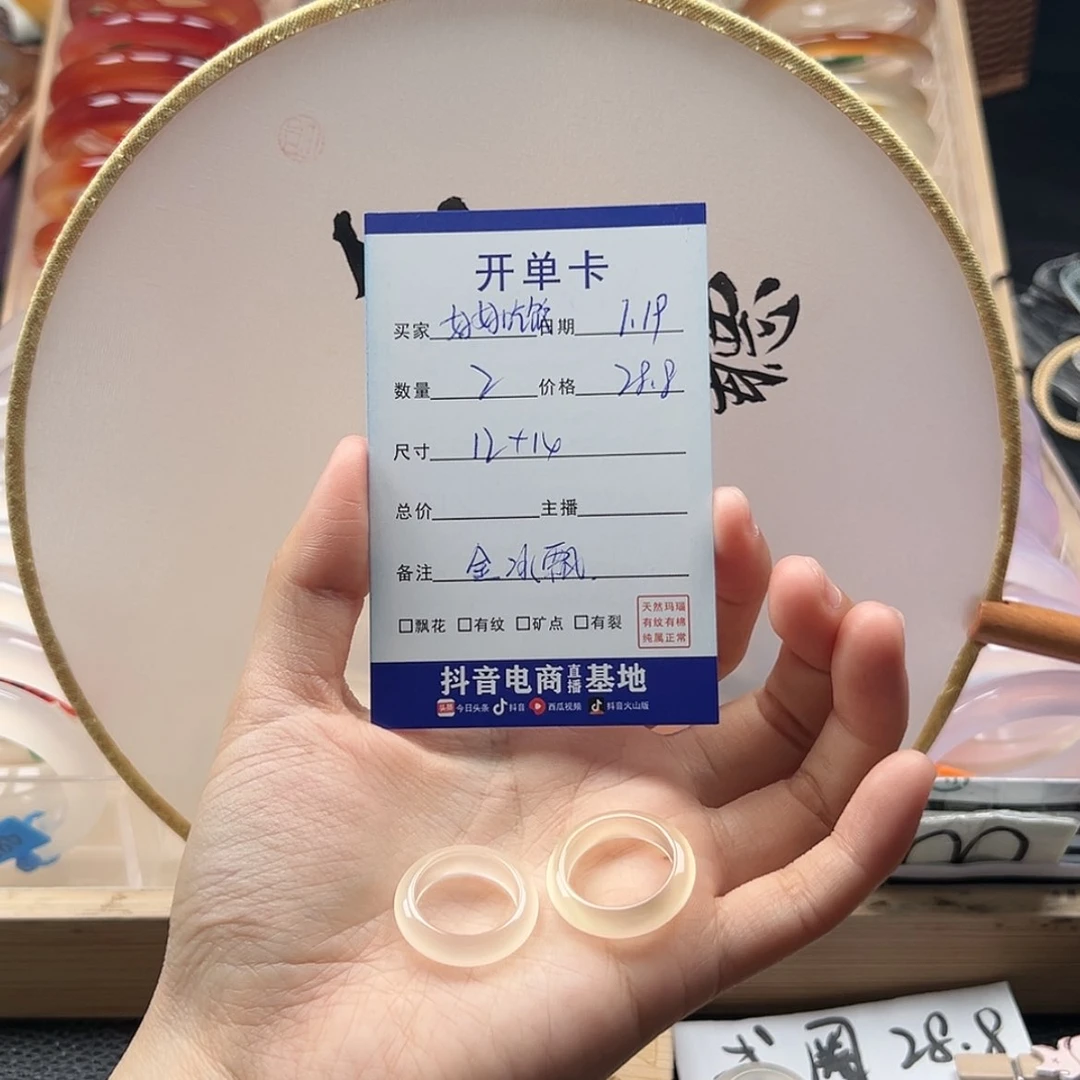 开单卡
买家 好好吃饭 日期 1.19
数量 2 价格 28.8
尺寸 12+14
总价 主播
备注 金冰飘.
☐飘花 ☐有纹 ☐矿点 ☐有裂
天然玛瑙
有纹有棉
纯属正常
抖音电商直播基地
头条 今日头条 抖音 西瓜视频 抖音火山版
圈 28.8